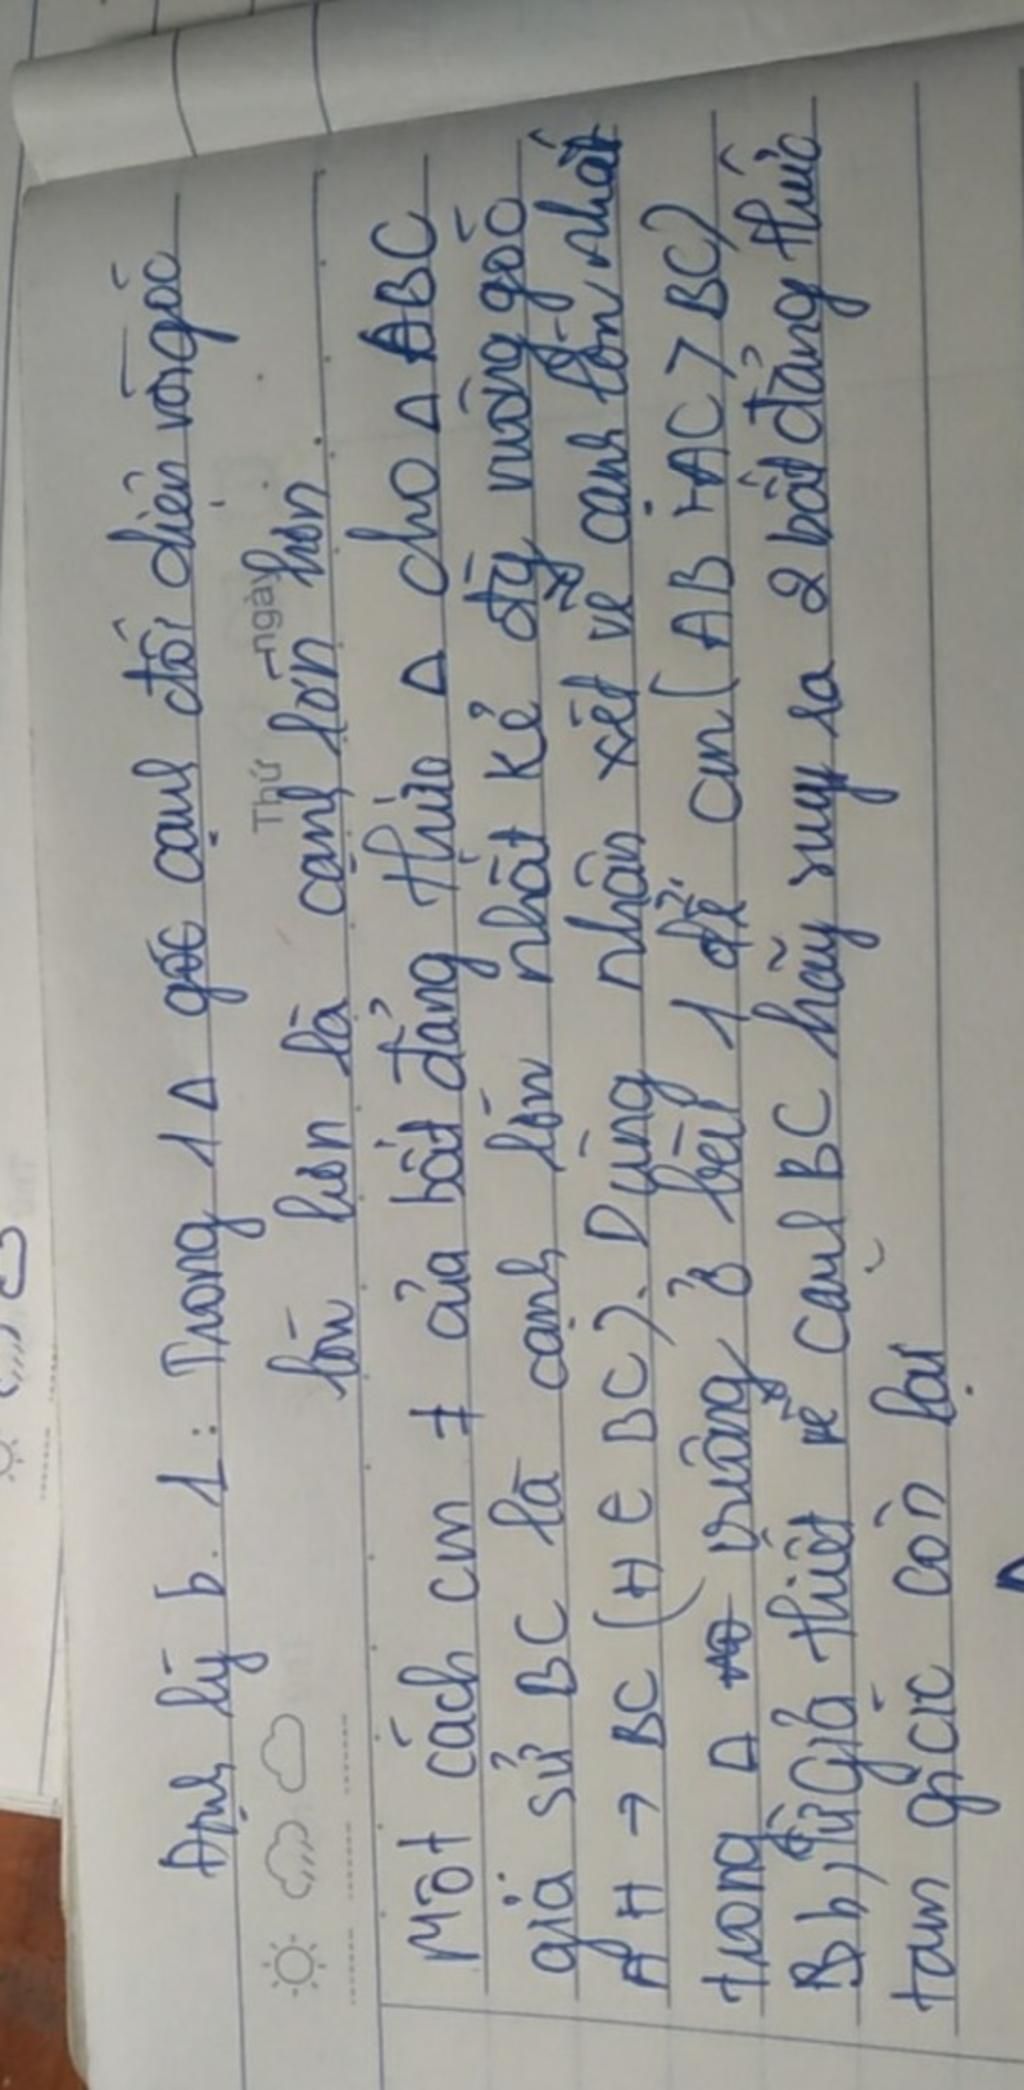 Định lý b.1: Trong 1 Δ góc cạnh đối diện với góc
Thứ ngày
lớn hơn là cạnh lớn hơn
Một cách cm ≠ của bất đẳng thức Δ cho Δ ABC
giả sử BC là cạnh lớn nhất kẻ đg vuông góc
AH → BC (H ∈ BC). Dùng nhận xét về cạnh lớn nhất
trong Δ vuông ở bài 1 để cm (AB + AC > BC)
B b, từ Giả thiết về cạnh BC hãy suy ra 2 bất đẳng thức
tam giác còn lại